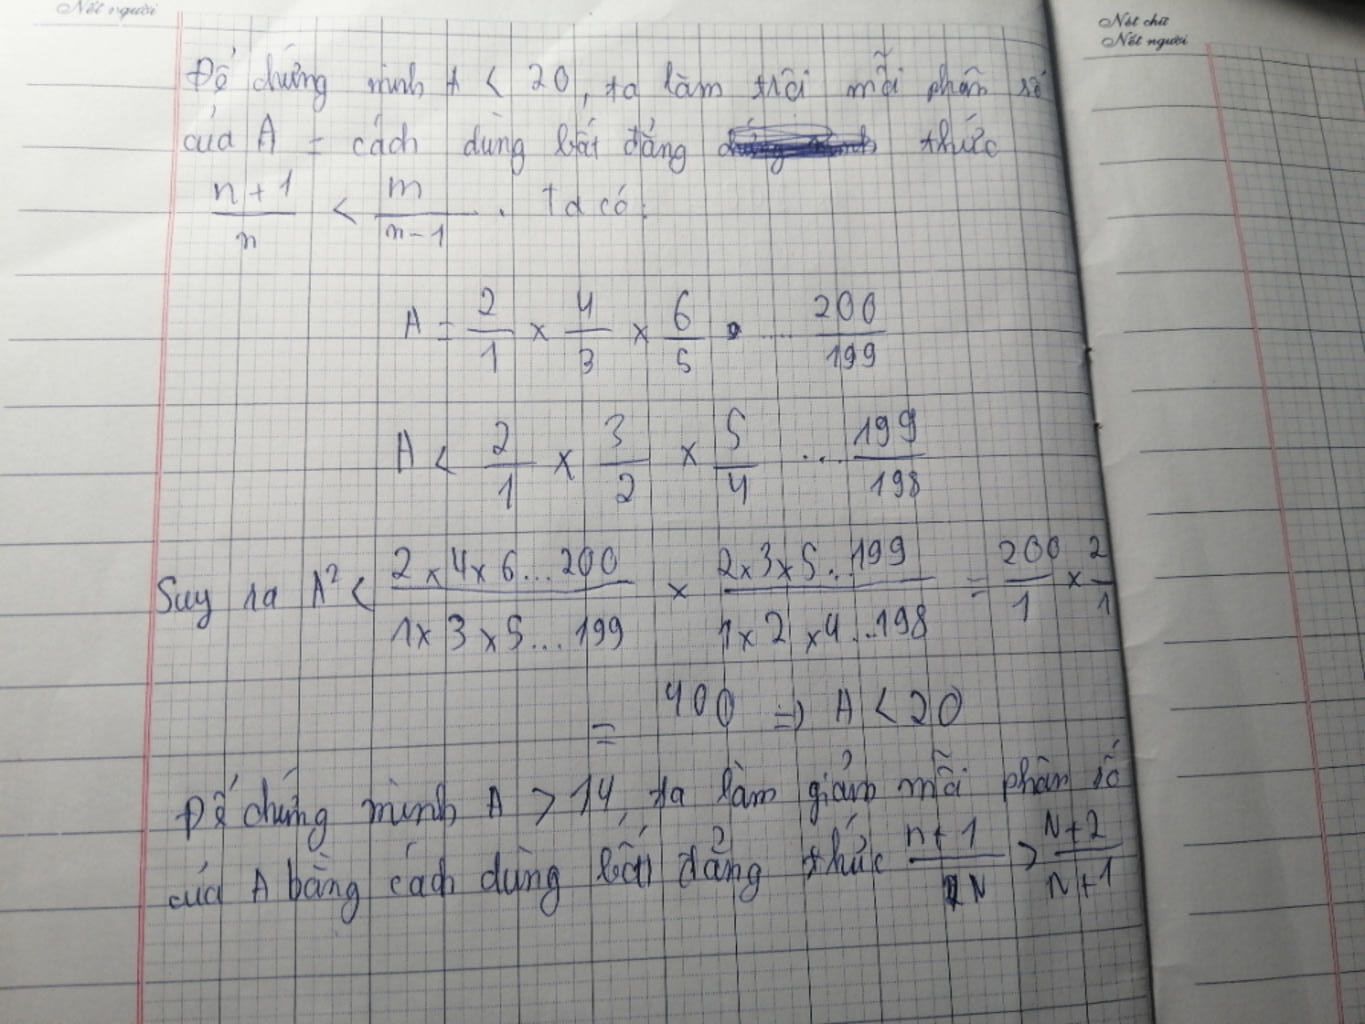 Nét người
Nét chữ
Nét người
Để chứng minh A < 20, ta làm trội mỗi phân số
của A = cách dùng bất đẳng thức
n+1/n < m/n-1 . Ta có:
A = 2/1 × 4/3 × 6/5 . ... 200/199
A < 2/1 × 3/2 × 5/4 ... 199/198
Suy ra A² < 2×4×6...200/1×3×5...199 × 2×3×5..199/1×2×4..198 = 200/1 × 2/1
= 400 => A < 20
Để chứng minh A > 14, ta làm giảm mỗi phân số
của A bằng cách dùng bất đẳng thức n+1/N > N+2/N+1